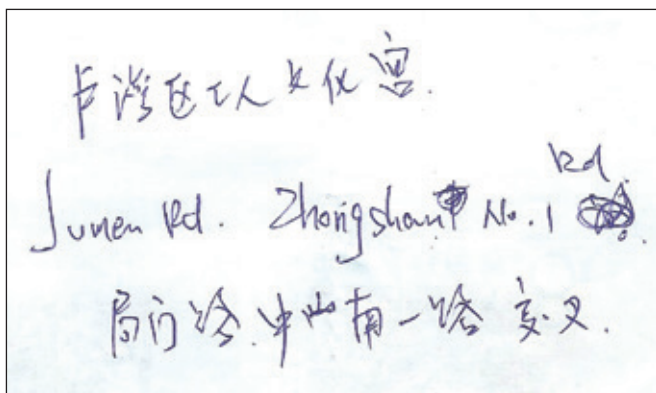 卢湾区工人文化宫.
Rd.
Jumen Rd. Zhongshan No. 1
局门路.中山南一路 交叉.